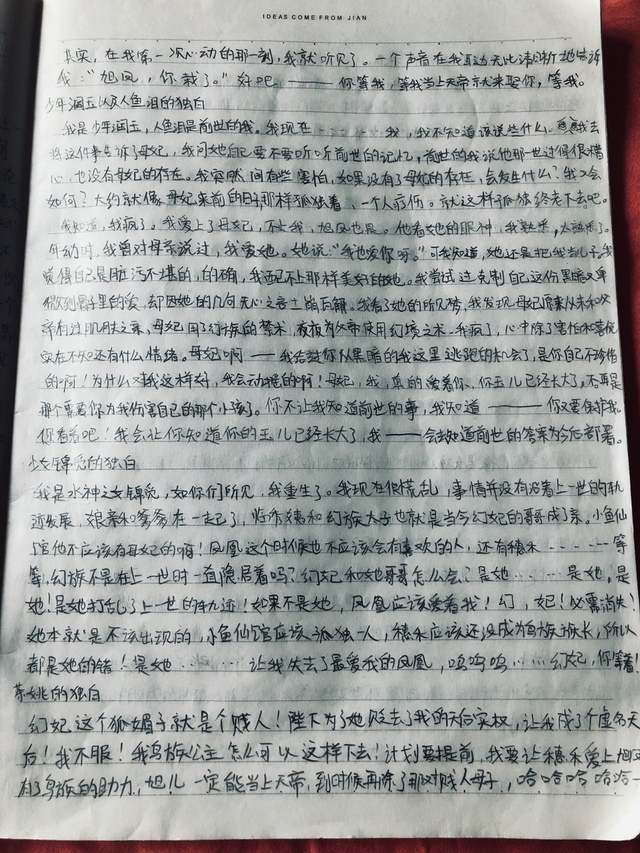 IDEAS COME FROM JIAN
其实，在我第一次心动的那一刻，我就听见了。一个声音在我耳边无比清晰地告诉
我："旭凤，你栽了。"好吧 —— 你等我，等我当上天帝就来娶你，等我。
少年润玉以及人鱼泪的独白
我是少年润玉，人鱼泪是前世的我。我现在 我，我不知道该说些什么。我去
将这件事告诉了母妃，我问她自己要不要听听前世的记忆，前世的我说他那一世过得很糟
心，也没有母妃的存在。我突然间有些害怕，如果没有了母妃的存在，会发生什么？我又会
如何？大约就像母妃来前的日子那样孤独着，一个人疗伤。就这样孤独终老下去吧。
我知道，我疯了。我爱上了母妃，不止我，旭凤也是。他看她的眼神，我熟悉，太熟悉了。
年幼时，我曾对母亲说过，我爱她。她说："我也爱你呀。"可我知道，她还是把我当儿子，我
觉得自己是脏污不堪的，的确，我配不上那样美好的她。我尝试过克制自己这份黑暗又卑
微到骨子里的爱，却因她的几句无心之言土崩瓦解。我看了她的所见梦，我发现母妃原来从未和父
帝有过肌肤之亲，母妃用了幻族的禁术，夜夜为父帝使用幻境之术。我疯了，心中除了害怕和
实在不知还有什么情绪。母妃啊 —— 我给过你从黑暗的我这里逃跑的机会了，是你自己不珍惜
的啊！为什么对我这样好，我会动摇的啊！母妃，我，真的爱着你，你玉儿已经长大了，不再是
那个需要你为我伤害自己的那个小孩了。你不让我知道前世的事，我知道 —— 你又要保护我。
你看着吧！我会让你知道你的玉儿已经长大了，我 —— 会去知道前世的答案为今后部署。
少女锦觅的独白
我是水神之女锦觅，如你们所见，我重生了。我现在很慌乱，事情并没有沿着上一世的轨
迹发展，娘亲和爹爹在一起了，临秀姨和幻族太子也就是当今幻妃的哥哥成了亲。小鱼仙
倌他不应该有母妃的啊！凤凰这个时候也不应该会有喜欢的人，还有穗禾 …… 等
等，幻族不是在上一世时一直隐居着吗？幻妃和她哥哥怎么会？是她 …… 是她，是
她！是她打乱了上一世的轨迹！如果不是她，凤凰应该爱着我！幻，妃！必需消失！
她本就是不该出现的，小鱼仙倌应该孤独一人，穗禾应该还没成为鸟族族长，所以
都是她的错！是她 …… 让我失去了最爱我的凤凰，呜呜呜……幻妃，你等着！
荼姚的独白
幻妃这个狐媚子就是个贱人！陛下为了她贬去了我的天后实权，让我成了个虚名天
后！我不服！我鸟族公主怎么可以这样下去！计划要提前，我要让穗禾爱上旭凤
有了鸟族的助力，旭儿一定能当上天帝，到时候再除了那对贱人母子，哈哈哈哈哈一